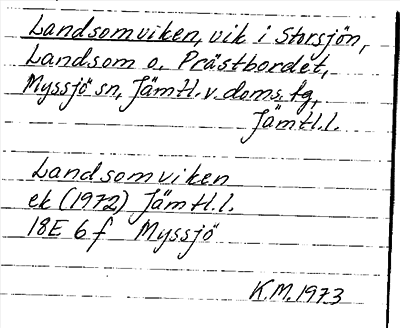 Landsomviken, vik i Storsjön,
Landsom o. Prästbordet,
Myssjö sn, Jämtl. v. doms. tg,
Jämtl.l.
Landsomviken
ek (1972) Jämtl.l.
18E 6f Myssjö
K.M. 1973